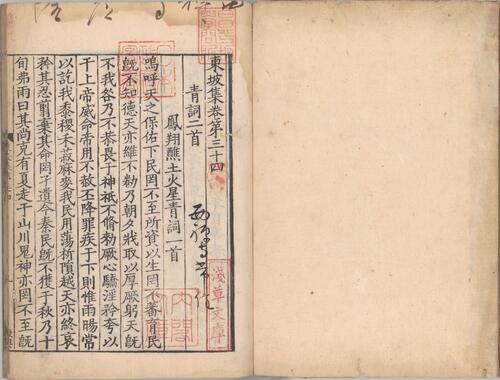 東坡集卷第三十四
青詞二首
鳳翔醮土火星青詞一首
嗚呼天之保佑下民罔不至所資以生罔不蕃育民
旣不知德天亦維不勑乃朝夕戕取以厚厥躬天旣
不我咎乃不恭畏于神祗不脩勑厥心驕淫矜夸以
干上帝威命帝用不赦丕降罪疾于下則惟雨暘常
以訖我黍稷末救麻麥我民用蕩析隕越天亦終哀
矜其忍翦棄其命罔孑遺今秦民旣不獲于秋乃十
旬弗雨曰其尚克有夏走于山川鬼神亦罔不至旣
淺草文庫